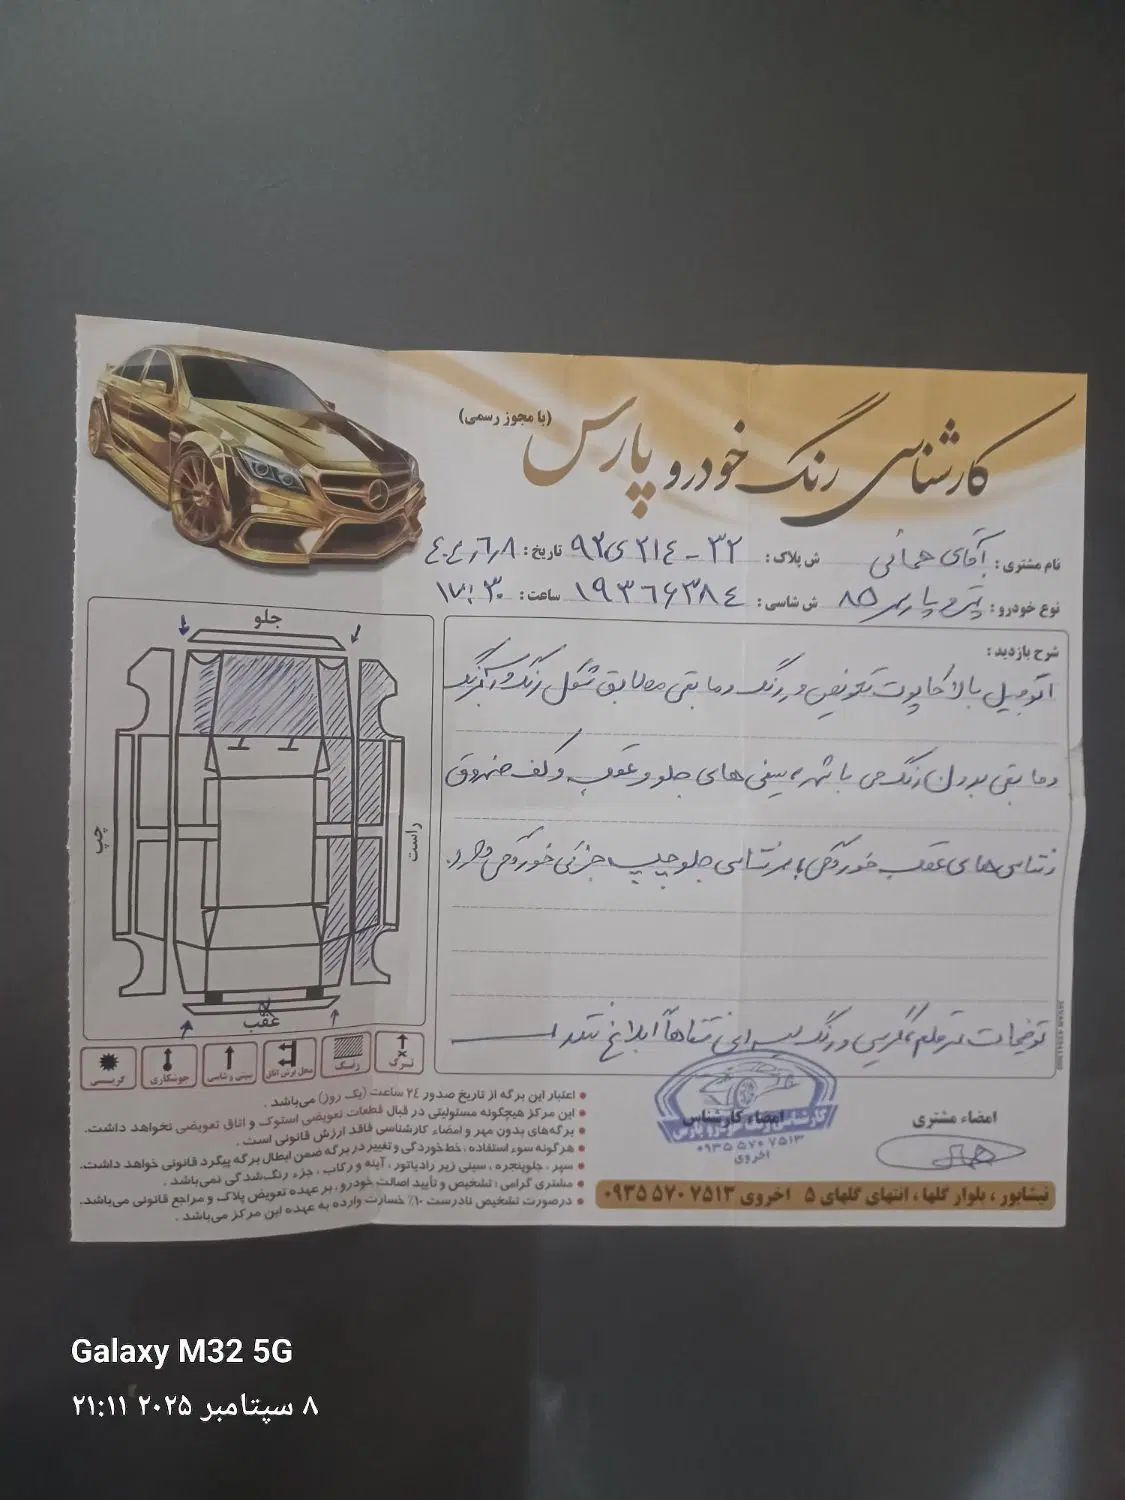 کارشناسی رنگ خودرو پارس
(با مجوز رسمی)
نام مشتری: آقای همائی ش پلاک: ۳۲ - ۲۱٤ ی ۹۲ تاریخ: ٤۰٤٫٦٫۸
نوع خودرو: پژو پارس ۸۵ ش شاسی: ۱۹۳۶۶۳۸٤ ساعت: ۱۷:۳۰
شرح بازدید:
اتومبیل بالا کاپوت تعویض و رنگ و مابقی مطابق شکل رنگ و
مابقی بدون رنگ می باشد، سینی های جلو و عقب و کف صندوق
شاسی های عقب خوردگی، سرشاسی جلو چپ جزئی خوردگی دارد.
توضیحات
جلو
چپ
راست
عقب
ترک
رنگ
محل برش اتاق
سینی و شاسی
جوشکاری
گریسی
امضاء مشتری
امضاء کارشناس
کارشناسی رنگ خودرو پارس
۰۹۳۵ ۵۷۰ ۷۵۱۳
اخروی
اعتبار این برگه از تاریخ صدور ۲٤ ساعت (یک روز) می‌باشد.
این مرکز هیچگونه مسئولیتی در قبال قطعات تعویضی استوک و اتاق تعویضی نخواهد داشت.
برگه‌های بدون مهر و امضاء کارشناسی فاقد ارزش قانونی است.
هرگونه سوء استفاده، خط‌خوردگی و تغییر در برگه ضمن ابطال برگه پیگرد قانونی خواهد داشت.
سپر، جلوپنجره، سینی زیر رادیاتور، آینه و رکاب، جزء رنگ‌شدگی نمی‌باشد.
مشتری گرامی: تشخیص و تأیید اصالت خودرو، بر عهده تعویض پلاک و مراجع قانونی می‌باشد.
درصورت تشخیص نادرست ۱۰٪ خسارت وارده به عهده این مرکز می‌باشد.
نیشابور، بلوار گلها، انتهای گلهای ۵ اخروی ۷۵۱۳ ۵۷۰ ۰۹۳۵
Galaxy M32 5G
۸ سپتامبر ۲۰۲۵ ۲۱:۱۱